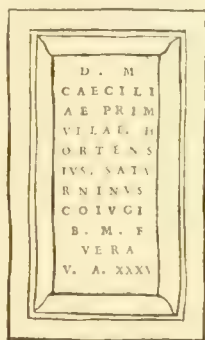 D . M
CAECILI
AE PRIM
VILAE. H
ORTENS
IVS. SATV
RNINVS
COIVGI
B. M. F
VERA
V. A. XXXV